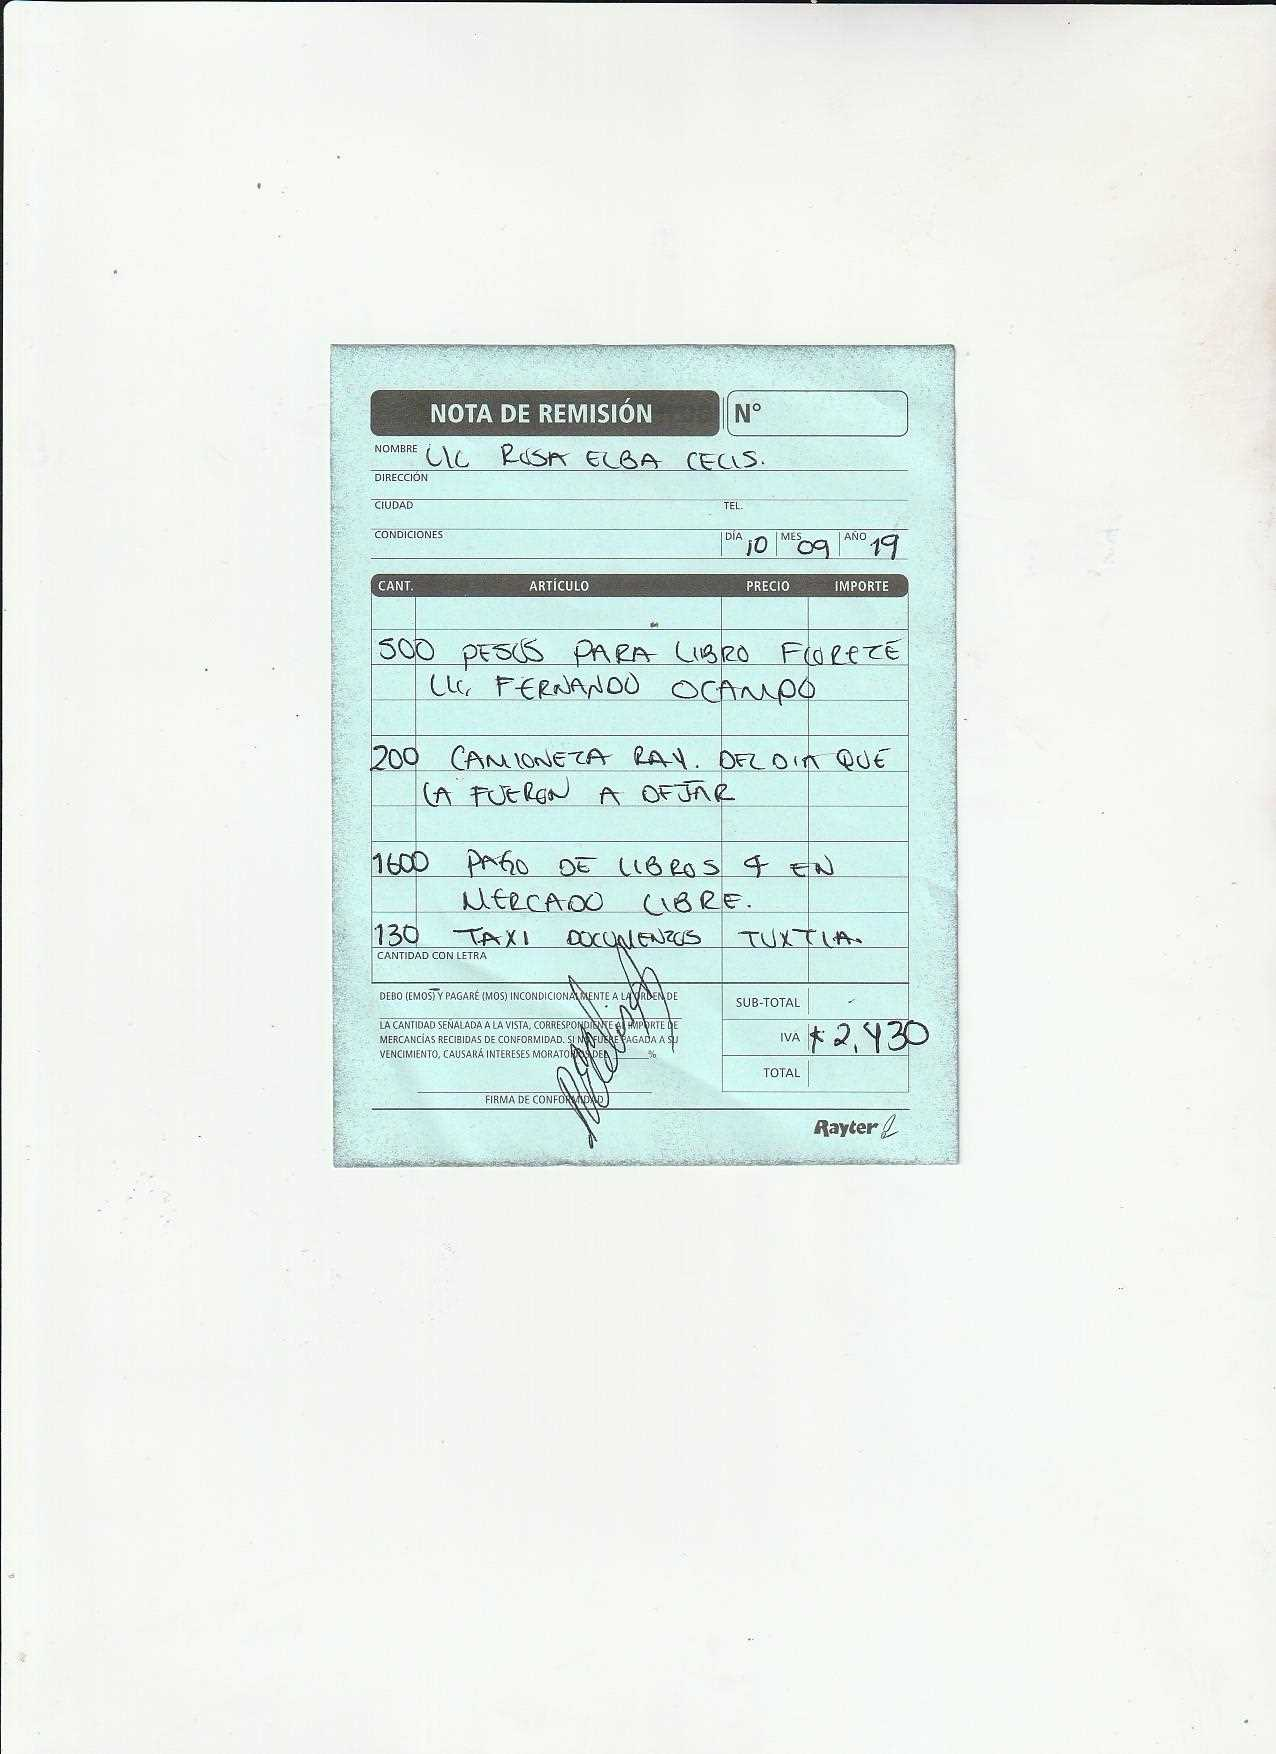 NOTA DE REMISIÓN N°
NOMBRE LIC ROSA ELBA CELIS.
DIRECCIÓN
CIUDAD TEL.
CONDICIONES DÍA 10 MES 09 AÑO 19
CANT. ARTÍCULO PRECIO IMPORTE
500 PESOS PARA LIBRO
LIC. FERNANDO OCAMPO
200 CAMIONETA RAY. DEL DIA QUE
LA FUERON A DEJAR
1600 PAGO DE LIBROS 4 EN
MERCADO LIBRE.
130 TAXI DOCUMENTOS TUXTLA.
CANTIDAD CON LETRA
DEBO (EMOS) Y PAGARÉ (MOS) INCONDICIONALMENTE A LA ORDEN DE
SUB-TOTAL
LA CANTIDAD SEÑALADA A LA VISTA, CORRESPONDIENTE AL IMPORTE DE
MERCANCÍAS RECIBIDAS DE CONFORMIDAD. SI NO FUERE PAGADA A SU
VENCIMIENTO, CAUSARÁ INTERESES MORATORIOS DEL %
IVA $ 2,430
TOTAL
FIRMA DE CONFORMIDAD
Rayter